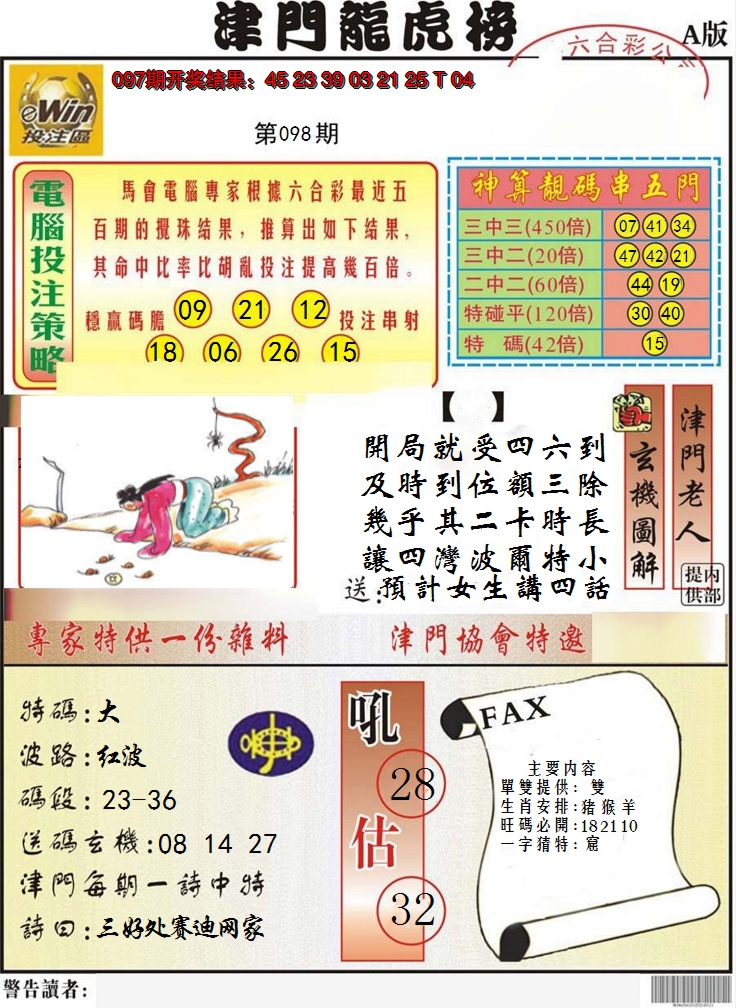 津門龍虎榜
A版
六合彩公
097期开奖结果：45 23 39 03 21 25 T 04
eWin
投注區
第098期
電腦投注策略
馬會電腦專家根據六合彩最近五
百期的攪珠结果，推算出如下结果，
其命中比率比胡亂投注提高幾百倍。
穩贏碼膽 09 21 12 投注串射
18 06 26 15
神算靚碼串五門
三中三(450倍) 07 41 34
三中二(20倍) 47 42 21
二中二(60倍) 44 19
特碰平(120倍) 30 40
特 碼(42倍) 15
【 】
開局就受四六到
及時到位額三除
幾乎其二卡時長
讓四灣波爾特小
送:預計女生講四話
玄機圖解
津門老人
内部提供
專家特供一份雜料
津門協會特邀
特碼:大
波路:红波
碼段:23-36
送碼玄機:08 14 27
津門每期一詩中特
詩曰:三好处赛迪网家
吼
28
估
32
FAX
主要内容
單雙提供: 雙
生肖安排:猪猴羊
旺碼必開:182110
一字猜特: 窟
警告讀者: